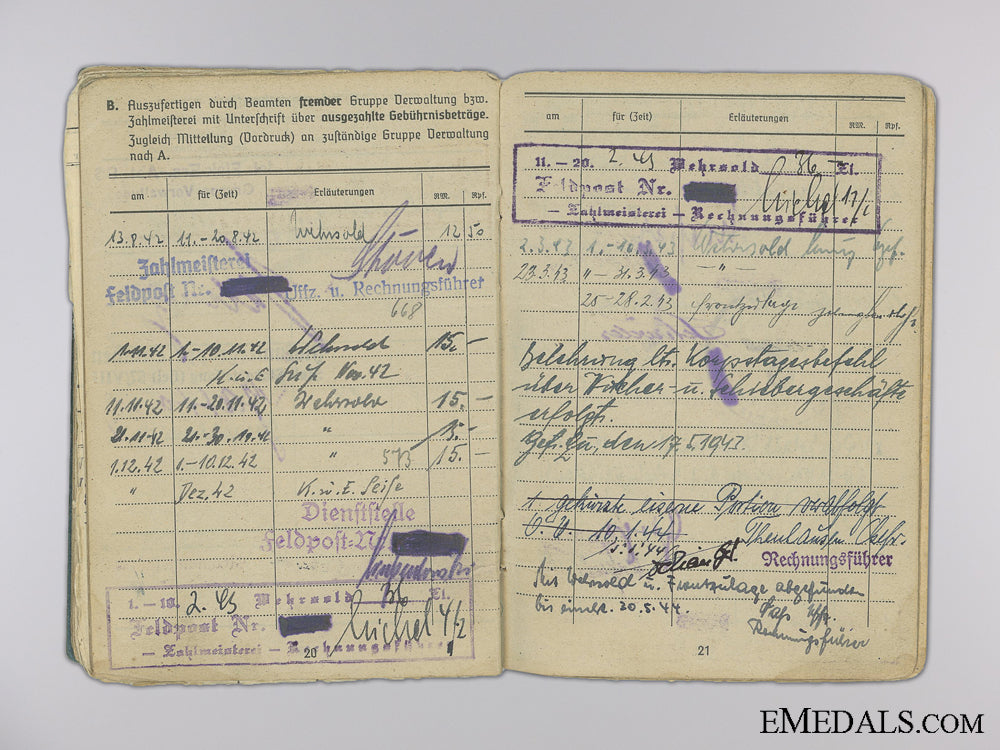 B. Auszufertigen durch Beamten fremder Gruppe Verwaltung bzw.
Zahlmeisterei mit Unterschrift über ausgezahlte Gebührnisbeträge.
Zugleich Mitteilung (Vordruck) an zuständige Gruppe Verwaltung
nach A.
am für (Zeit) Erläuterungen RM. Rpf.
13.8.42 11.-20.8.42 Wehrsold 12 50
Zahlmeisterei
Feldpost Nr. Uffz. u. Rechnungsführer
668
1.11.42 1.-10.11.42 Wehrsold 15.-
K.u.E. Nov. 42
11.11.42 11.-20.11.42 Wehrsold 15.-
21.11.42 21.-30.11.42 " 15.-
1.12.42 1.-10.12.42 " 573 15.-
" Dez. 42 K.u.E. Seife
Dienststelle
Feldpost-Nr.
1.-10. 2. 43 Wehrsold 36 Zl.
Feldpost Nr. Michel 4/2
- Zahlmeisterei - Rechnungsführer
20
am für (Zeit) Erläuterungen RM. Rpf.
11.-20. 2. 43 Wehrsold 36 Zl.
Feldpost Nr. Michel 12/2
- Zahlmeisterei - Rechnungsführer
2.3.43 1.-10. 43 Wehrsold
22.3.43 " -31.3.43 - " -
20-28.2.43 Frontzulage
Belehrung lt. Korpstagesbefehl
über Wucher u. Schiebergeschäfte
erfolgt.
den 17.5.1943.
1 gekürzte eiserne Portion
O.U. 10.1.44
Rechnungsführer
Mit Wehrsold u. Frontzulage abgefunden
bis einschl. 20.5.44.
Uffz.
Rechnungsführer
21
EMEDALS.COM